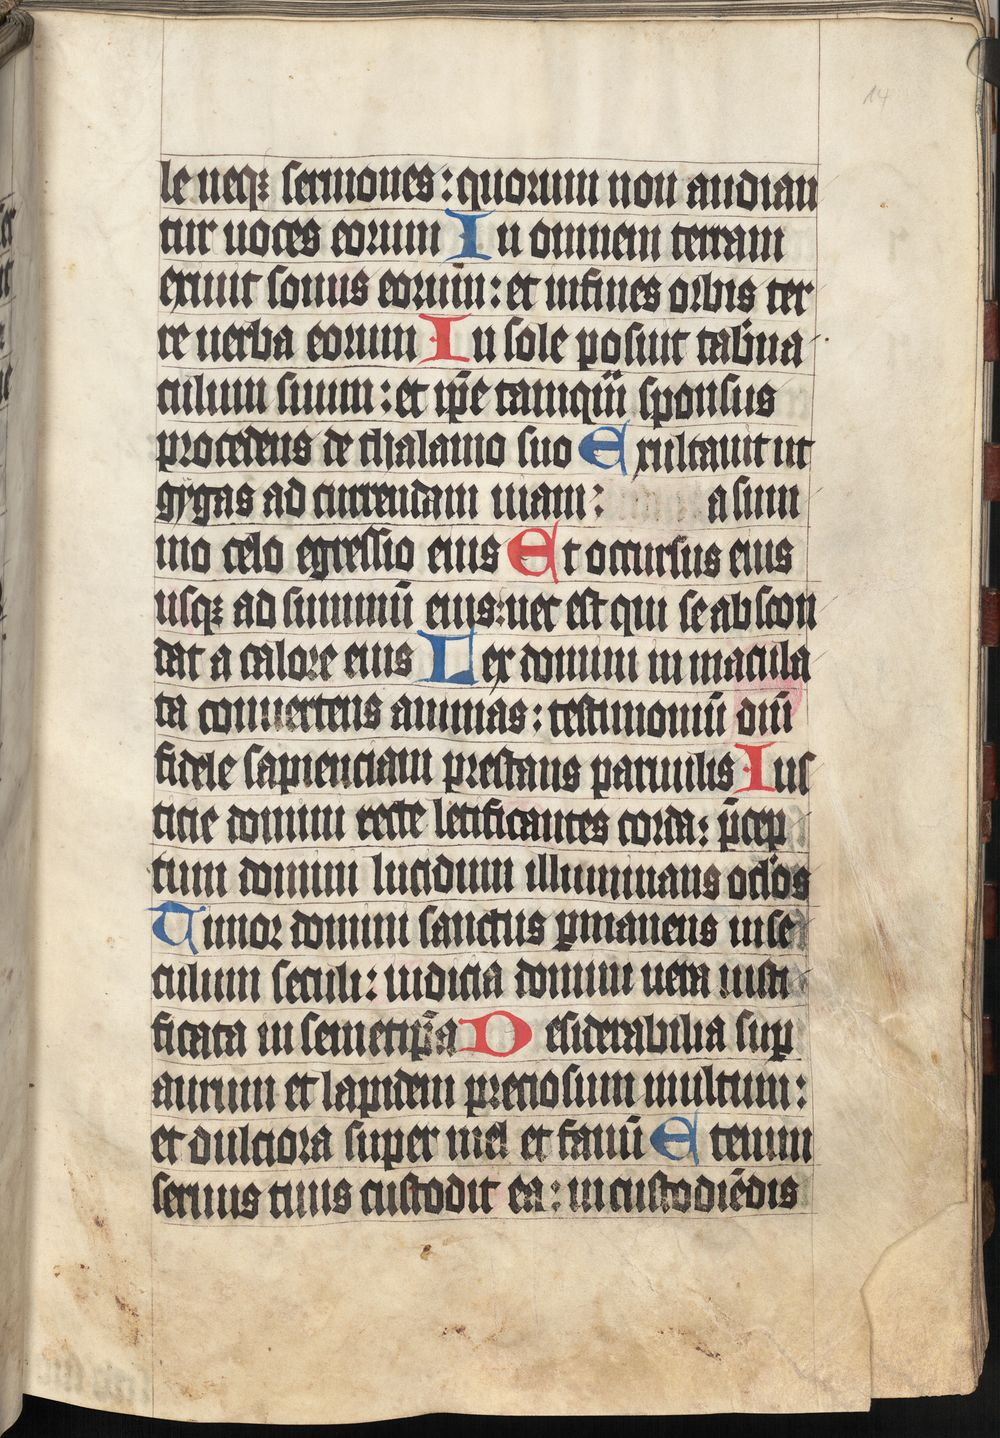 14
le neqꝫ sermones : quorum non audian
tur uoces eorum In omnem terram
exiuit sonus eorum : et infines orbis ter
re uerba eorum In sole posuit tab̄na
culum suum : et ip̄e tamqūi sponsus
procedens de thalamo suo Exultauit ut
gygas ad currendam uiam : a sum
mo celo egressio eius Et occursus eius
usqꝫ ad summū eius : nec est qui se abscon
dat a calore eius Lex domini in macula
ta conuertens animas : testimoniū dn̄i
fidele sapienciam prestans paruulis Ius
ticie domini recte letificantes corda : p̄cep
tum domini lucidum illuminans oc̄los
Timor domini sanctus ꝑmanens inse
culum seculi : iudicia domini uera iusti
ficata in semetip̄a Desiderabilia suꝑ
aurum et lapidem preciosum multum :
et dulciora super mel et fauū Etenim
seruus tuus custodit ea : in custodiēdis